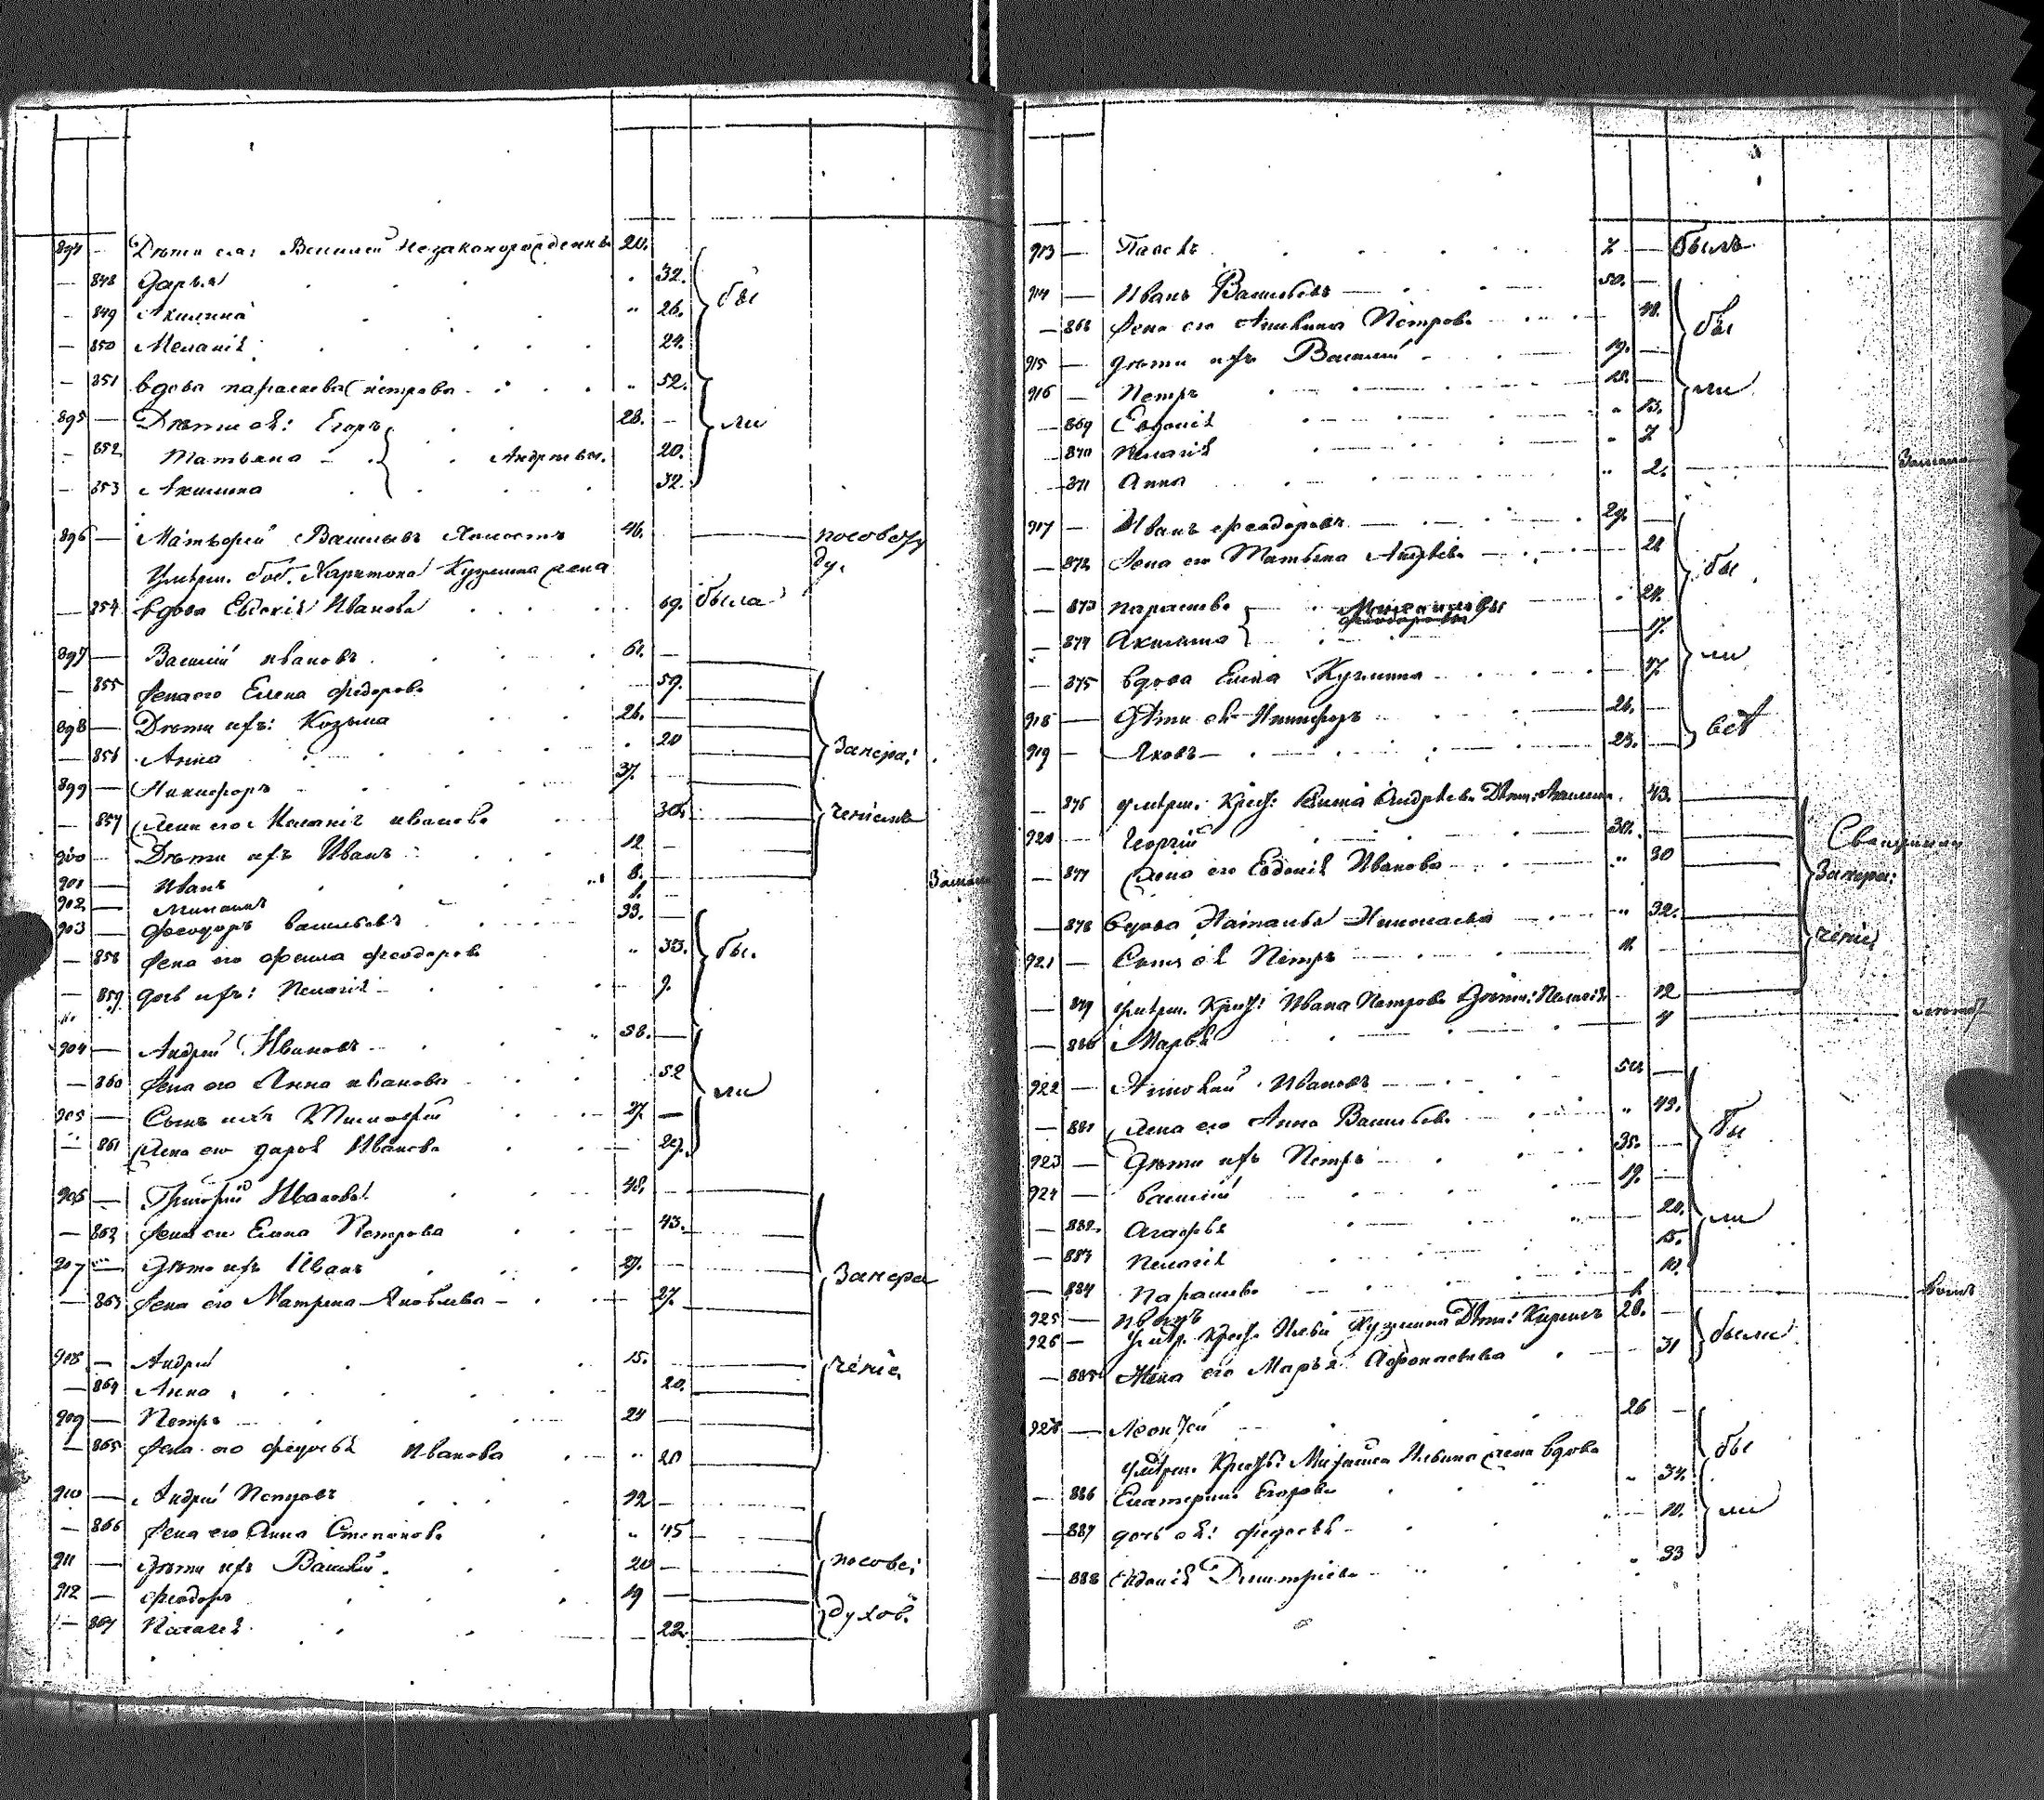 894 — Дѣти ея: Василей Незаконорожденный 20.
— 848 Дарья 32. бы
— 849 Акилина 26.
— 850 Меланія 24.
— 851 вдова параскева петрова 52.
895 — Дѣти ея: Егоръ 28. — ли
— 852 Татьяна Андреевы. 20.
— 853 Акилина 32.
896 — Матвѣй Васильевъ Холостъ 46. — по сове
Умерш. боб. Харитона Кузмина жена ду.
— 854 вдова Евдокія Иванова 69. была
897 — Василій ивановъ 61. —
— 855 жена его Елена федорова 59.
898 — Дѣти ихъ: Козьма 26. —
— 856 Анна 20 Занера:
899 — Никифоръ 37. —
— 857 жена его Меланія иванова 30. ченіемъ
900 — Дѣти ихъ Иванъ 12 —
901 — Иванъ 8. —
902 — Михаилъ
903 — феодоръ васильевъ 33. —
— 858 жена его фекла феодорова 33. бы.
— 859 дочь ихъ: Пелагія 9.
904 — Андрей Ивановъ 58. —
— 860 жена его Анна иванова 52 ли
905 — Сынъ ихъ Тимофей 27. —
— 861 жена его дарья Иванова 29.
906 — Григорій Ивановъ 48. —
— 862 жена его Елена Петрова 43.
907 — Дѣти ихъ Иванъ 29. — Занера
— 863 жена его Матрена Яковлева 27.
908 — Андрей 15. — ченіе
— 864 Анна 20.
909 — Петръ 24 —
— 865 жена его федосья Иванова 20
910 — Андрей Петровъ 42 —
— 866 жена его Анна Степанова 45
911 — Дѣти ихъ Василій. 20 — по сове:
912 — феодоръ 19 — духов.
— 867 Пелагія 22.
913 — Павелъ 7 — былъ
914 — Иванъ Васильевъ 50. —
— 868 жена его Петрова 48. бы
915 — дѣти ихъ Василій 19. —
916 — Петръ 18. — ли
— 869 Евдокія 13.
— 870 Пелагія 7
— 871 Анна 2.
917 — Иванъ феодоровъ 29. —
— 872 жена его Татьяна Андреева 28 бы
— 873 параскева 24.
— 874 Акилина 17. ли
— 875 вдова Елена Кузмина 47.
918 — Дѣти ея Никифоръ 26. —
919 — Яковъ 23. — всѣ
— 876 умерш. Крест: Андреева Дѣти: Акилина 43.
920 — Георгій 30. —
— 877 жена его Евдокія Иванова 30 Занера:
— 878 вдова Наталья Николаева 32. ченіе
921 — Сынъ ея Петръ 11. —
— 879 умерш. Крест: Ивана Петрова Дѣти: Пелагія 12
— 880 Марья 4
922 — Ивановъ —
— 881 жена его Анна Васильева 49. бы
923 — Дѣти ихъ Петръ 35. —
924 — василій 19. —
— 882. Агафья 20. ли
— 883 Пелагія 15.
— 884 Параскева
925 — Иванъ
926 — Умер. Крест. Кузмина Дѣти: Кирилъ 28. — были
— 885 Жена его Марья Афонасьева 31
927 — Леонтей 26 —
умерш. Крест: Михаила Ильина жена вдова бы
— 886 Екатерина Егорова 34.
— 887 дочь ея: федосья 10. ли
— 888 Евдокія Дмитріева 33